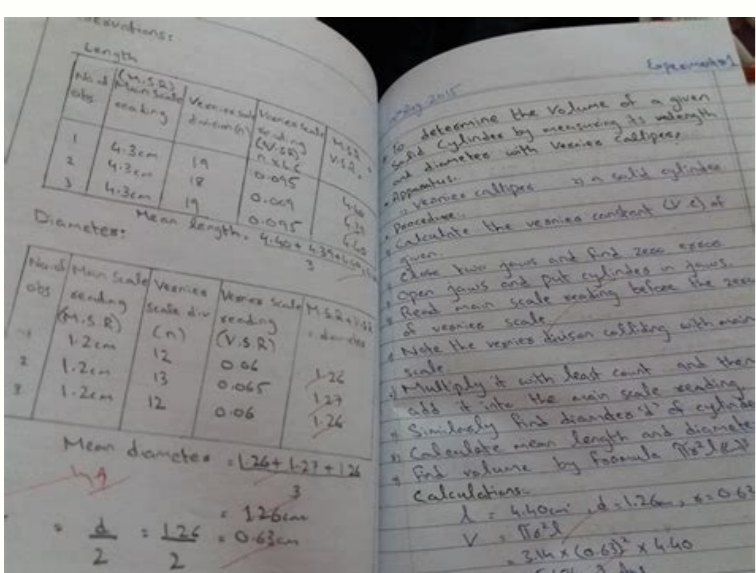 Observations:
Length
No. of obs | (M.S.R) Main Scale reading | Vernier scale division (n) | Vernier scale reading (V.S.R) n x L.C | M.S.R + V.S.R
1 | 4.3cm | 19 | 0.095 | 4.40
2 | 4.3cm | 18 | 0.009 | 4.39
3 | 4.3cm | 19 | 0.095 | 4.40
Mean length = 4.40 + 4.39 + 4.40
3
Diameter:
No. of obs | Main Scale reading (M.S.R) | Vernier Scale div (n) | Vernier Scale reading (V.S.R) | M.S.R + V.S.R = diameter
1 | 1.2cm | 12 | 0.06 | 1.26
2 | 1.2cm | 13 | 0.065 | 1.27
3 | 1.2cm | 12 | 0.06 | 1.26
Mean diameter = 1.26 + 1.27 + 1.26
3
= 1.26cm
= d/2 = 1.26/2 = 0.63cm
Experiment #1
Aug, 2015
To determine the volume of a given
solid cylinder by measuring its length
and diameter with vernier callipers
Apparatus:
vernier callipers 2) a solid cylinder
Procedure:
Calculate the vernier constant (V c) of
given.
Close two jaws and find zero error
Open jaws and put cylinder in jaws.
Read main scale reading before the zero
of vernier scale
Note the vernier divison calliding with main
scale.
Multiply it with least count and then
add it into the main scale reading
Similarly find diameter 'd' of cylinder
Calculate mean length and diameter
Find volume by formula πr²l
Calculations:
l = 4.40cm, d = 1.26cm, r = 0.63
V = πr²l
= 3.14 x (0.63)² x 4.40